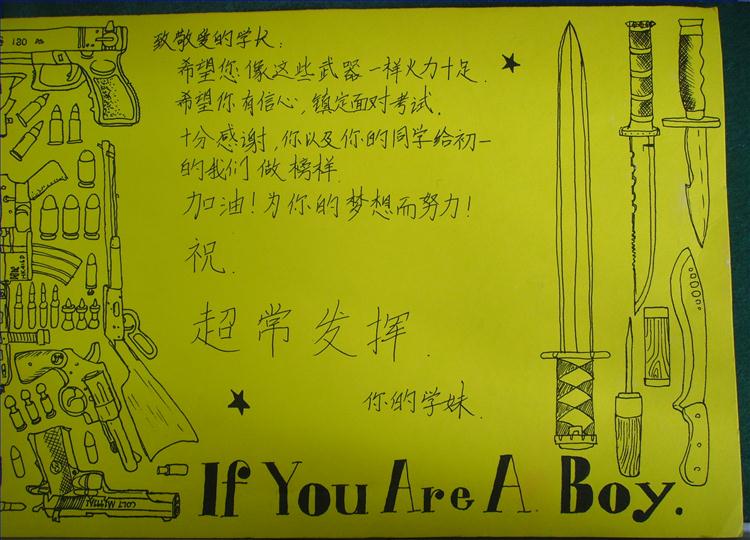 致敬爱的学长：
希望您像这些武器一样火力十足.
希望你有信心,镇定面对考试.
十分感谢,你以及你的同学给初一
的我们做榜样.
加油！为你的梦想而努力！
祝.
超常发挥.
你的学妹.
If You Are A. Boy.